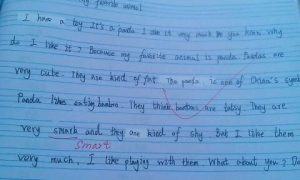 my favorite animal
I have a toy. It's a panda I like it very much. Do you know why
do I like it? Because my favorite animal is panda. Pandas are
very cute. They are kind of fat. The panda is one of China's symbol
Panda likes eating bamboo. They think bamboos are tasty. They are
very smark and they are kind of shy. But I like them
smart
very much, I like playing with them. What about you,